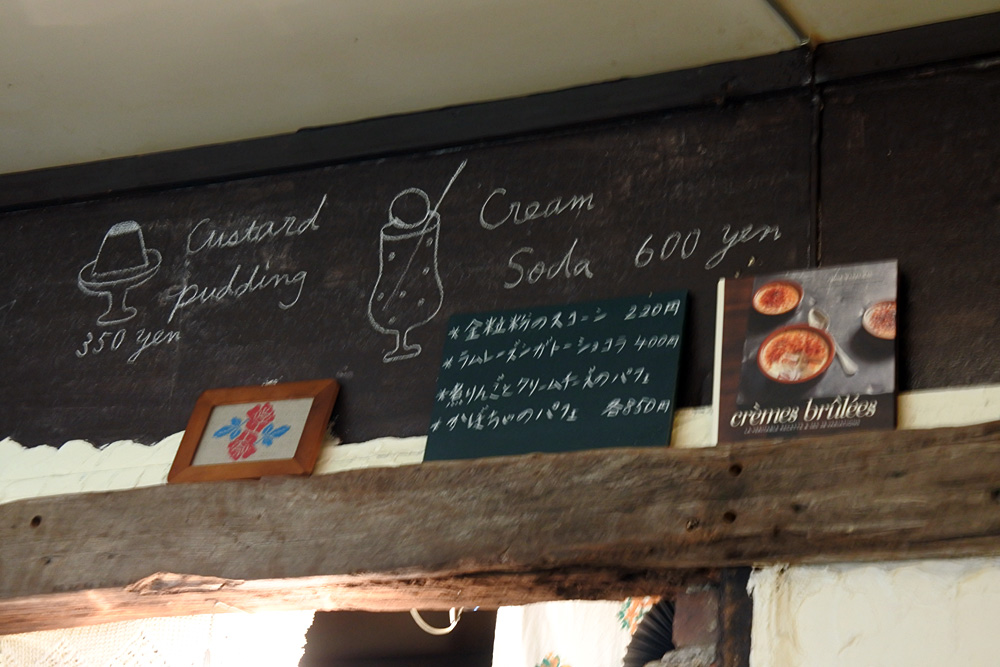 Custard
pudding
350 yen
Cream
Soda 600 yen
*全粒粉のスコーン 220円
*ラムレーズンガトーショコラ 400円
*煮りんごとクリームチーズのパフェ
*かぼちゃのパフェ 各850円
crèmes brûlées